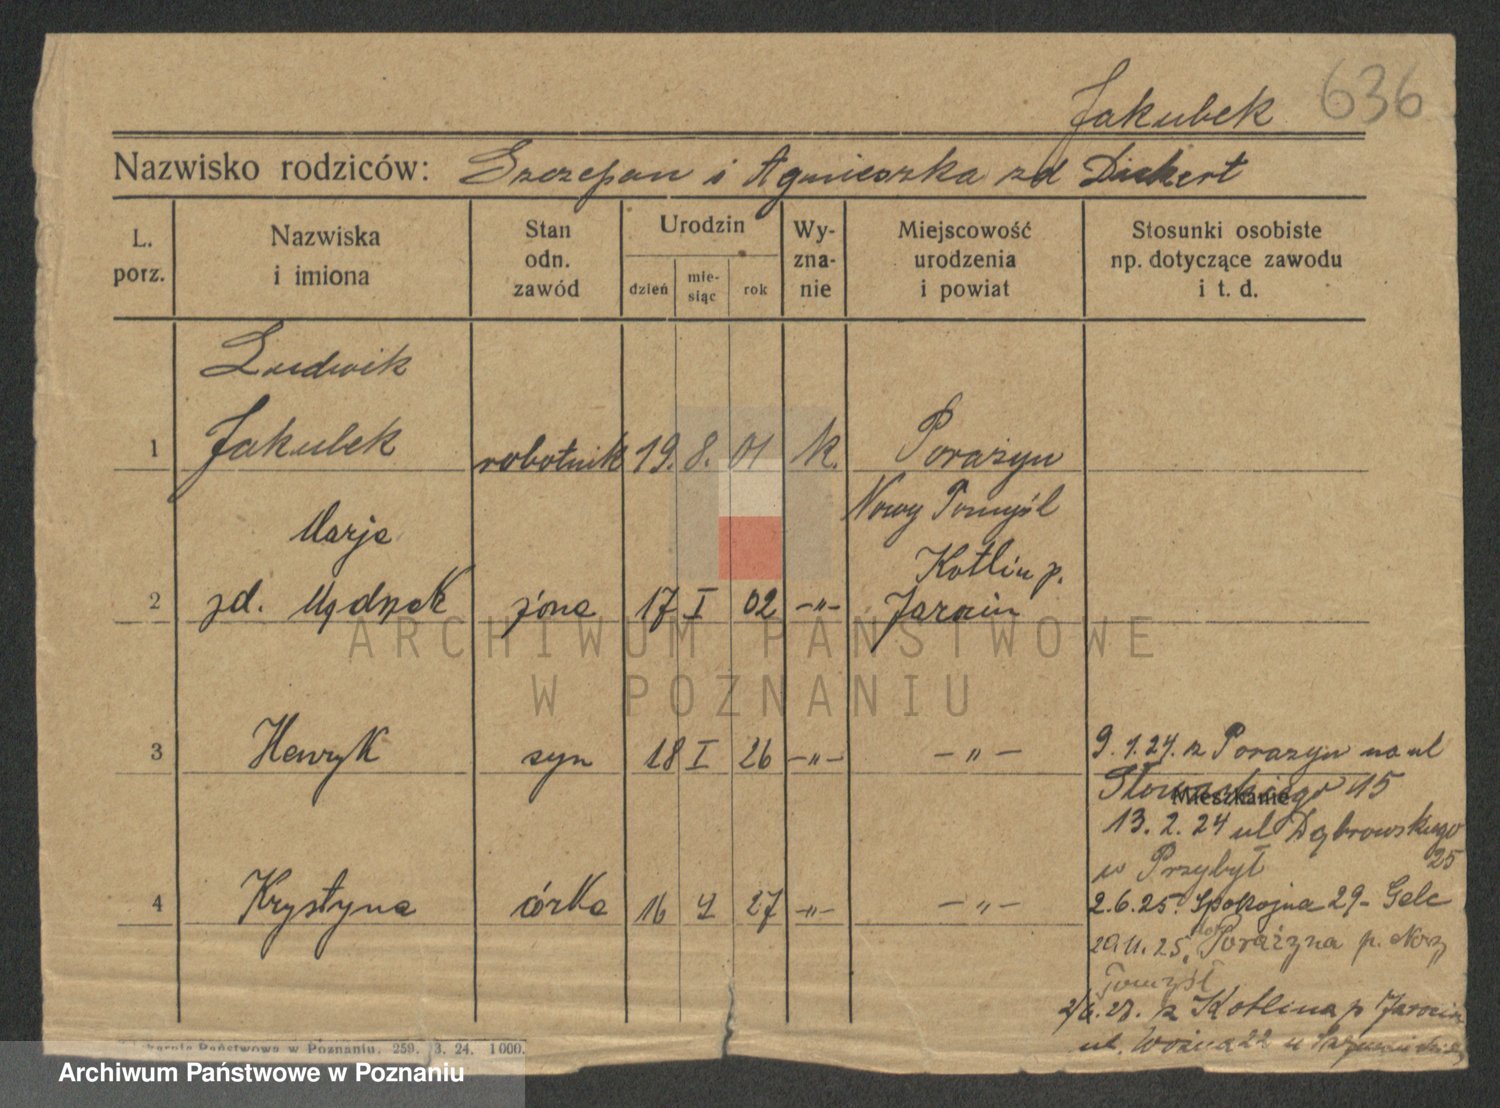 636
Jakubek
Nazwisko rodziców: Szczepan i Agnieszka zd Dickert
L. porz.
Nazwiska i imiona
Stan odn. zawód
Urodzin
dzień
mie-siąc
rok
Wy-zna-nie
Miejscowość urodzenia i powiat
Stosunki osobiste np. dotyczące zawodu i t. d.
Ludwik
1 Jakubek robotnik 19. 8. 01 k. Porażyn
Nowy Tomyśl
Marja
Kotlin p.
2 zd. żona 17 I 02 -"- Jarocin
3 Henryk syn 18 I 26 -"- -"-
9.1.24. z Porazyn na ul
Słowackiego 15
Mieszkanie
13. 2. 24 ul Dąbrowskiego
25
w Przybył
4 Krystyna córka 16 27 -"- -"-
2.6.25. Spokojna 29-
20.11.25. Porążyna p. Nowy
Tomyśl
z Kotlina p Jarocin
ul. Woźna 22 u
Państwowa w Poznaniu. 259. 3. 24. 1000.
ARCHIWUM PAŃSTWOWE
W POZNANIU
Archiwum Państwowe w Poznaniu